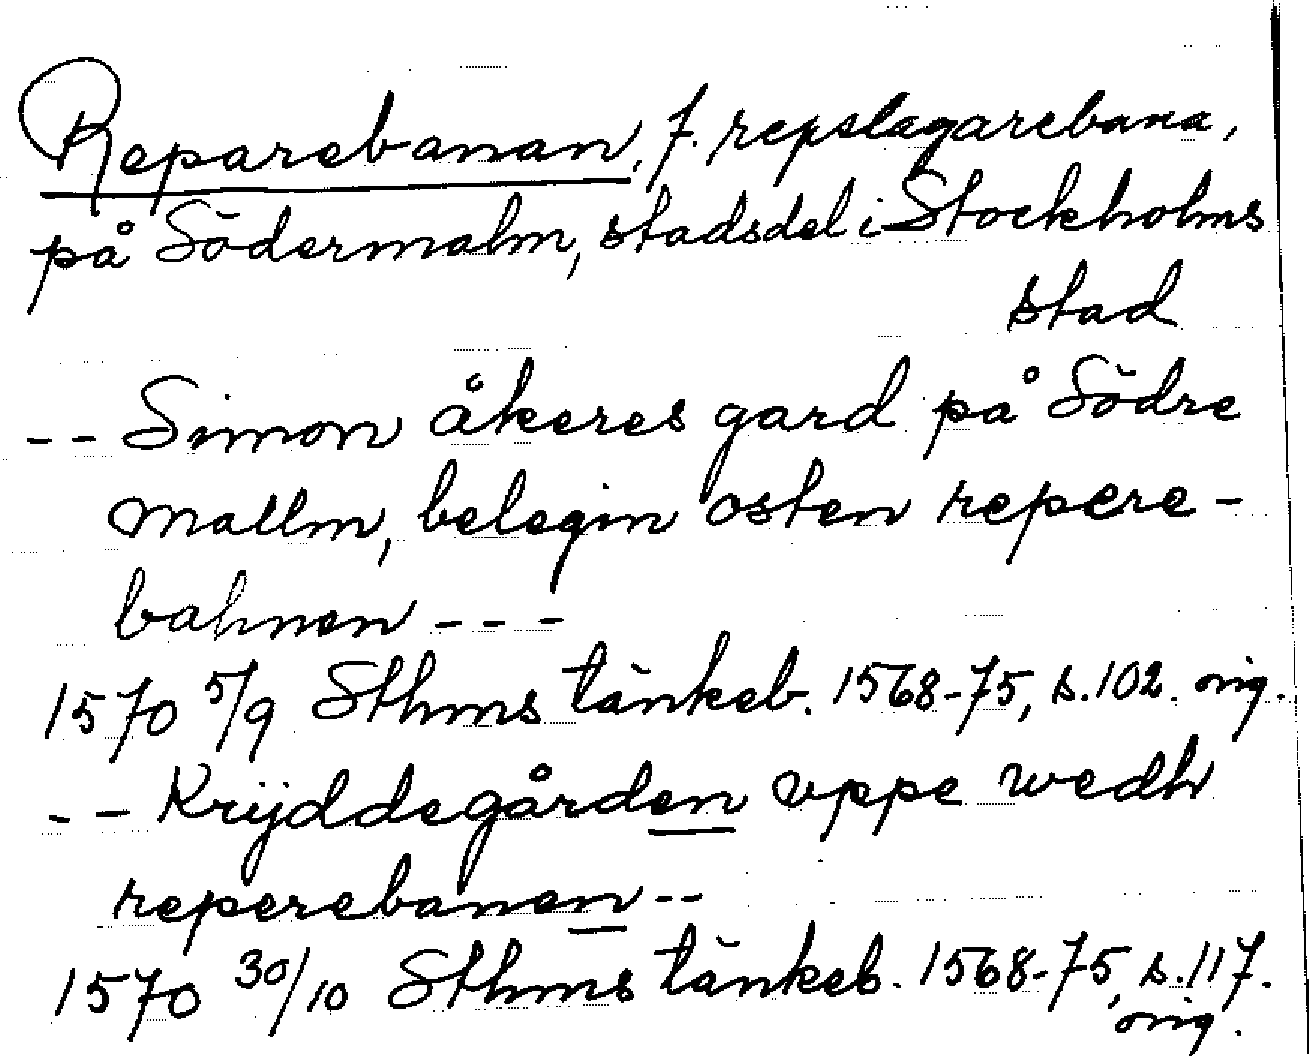 Reparebanan, f. repslagarebana,
på Södermalm, stadsdel i Stockholms
stad
-- Simon åkeres gard på Södre
mallm, belegin osten repere-
bahnen ---
1570 5/9 Sthms tänkeb. 1568-75, s. 102. orig.
-- Krijddegården vppe wedh
reperebanen --
1570 30/10 Sthms tänkeb. 1568-75, s. 117.
orig.